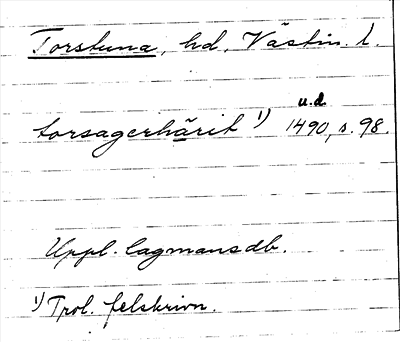 Torstuna, hd, Västm. l.
u.d.
torsagerhärit 1) 1490, s. 98.
Uppl. lagmansdb.
1) Trol. felskrivn.